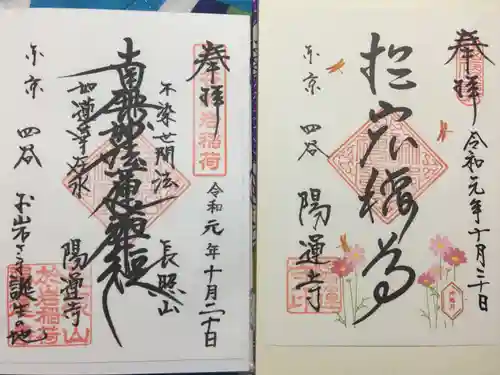 奉拝
令和元年十月二十日
於岩稲荷
東京 四谷
陽運寺
奉拝
於岩稲荷
令和元年十月二十日
不染世間法
長照山
南無妙法蓮華経
如蓮華在水
陽運寺
東京 四谷
お岩さま誕生の地
於岩稲荷